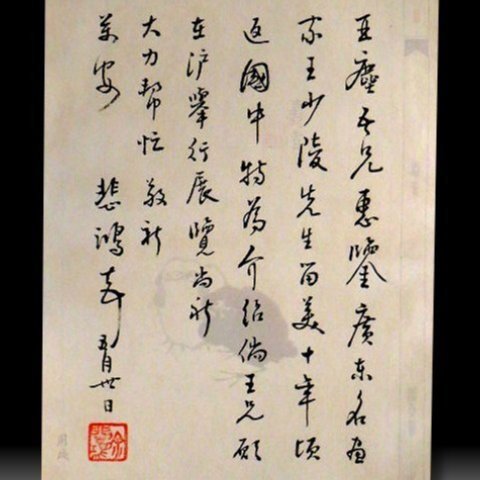 亚尘吾兄惠鑒廣东名画
家王少陵先生留美十年頃
返國中特為介紹倘王兄願
在沪舉行展覽尚祈
大力帮忙敬祈
萬安
悲鴻 五月卅日